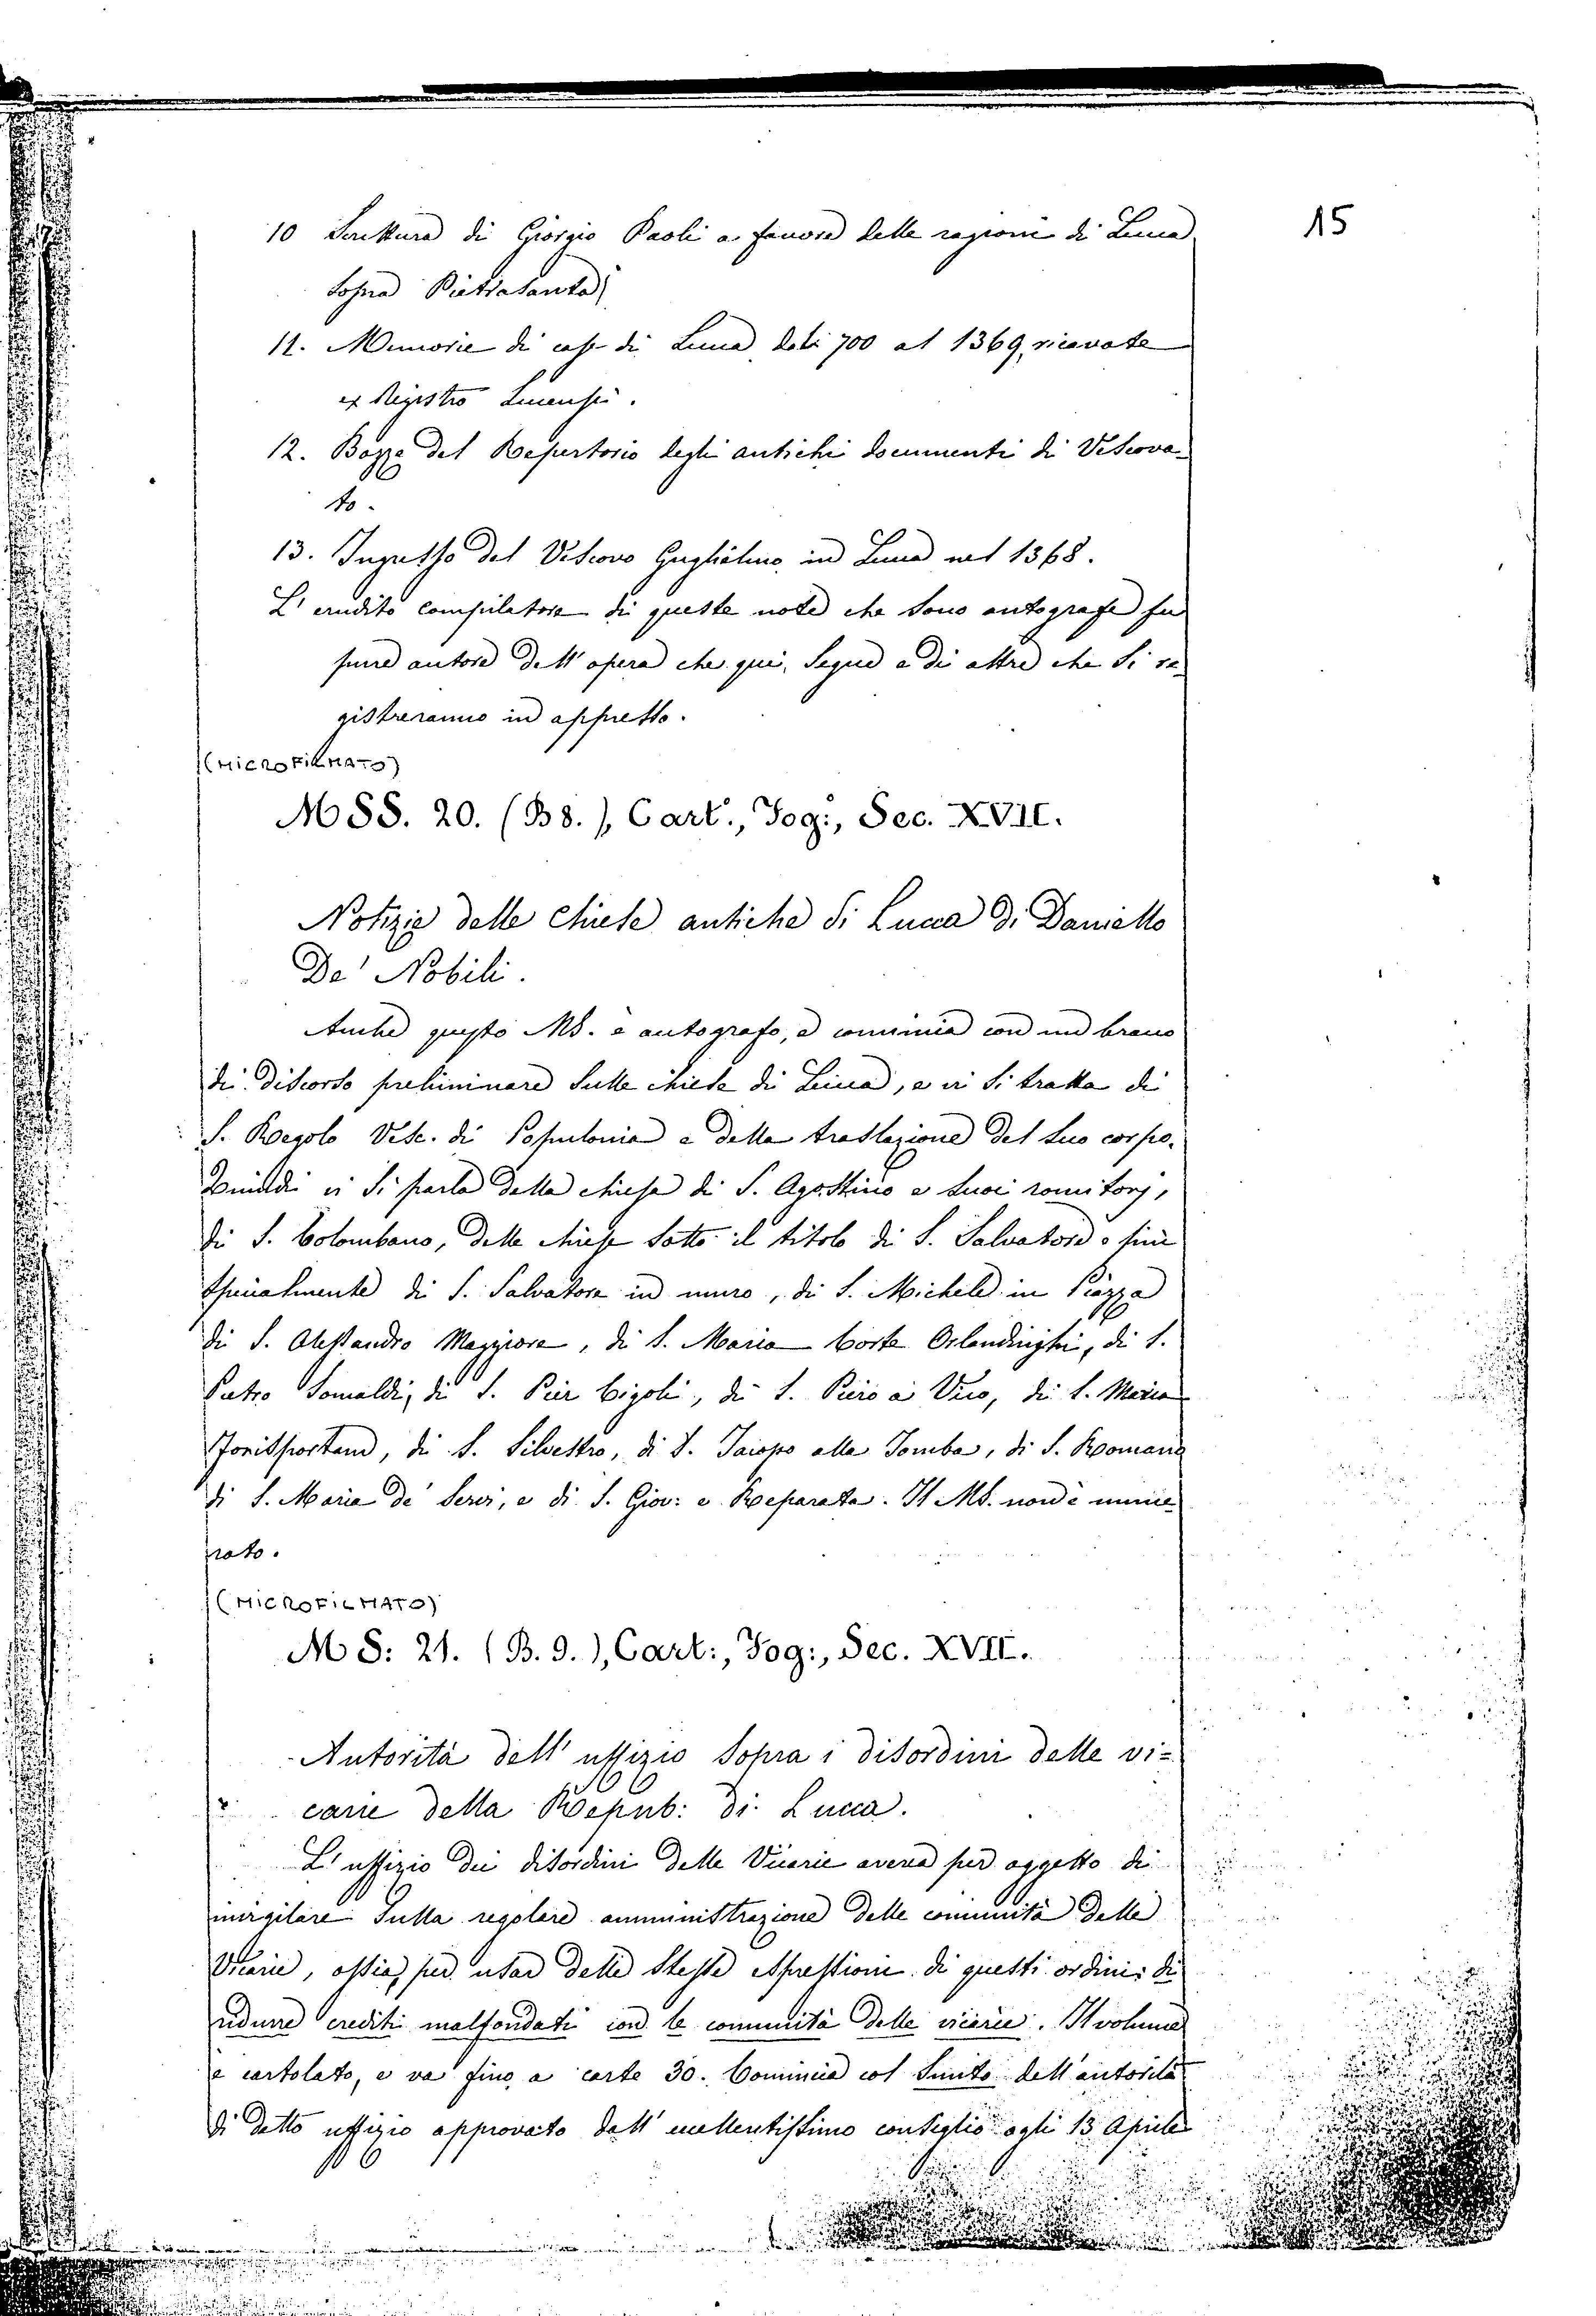 15
10 Scrittura di Giorgio Paoli a favore delle ragioni di Lucca
sopra Pietrasanta
11. Memorie di case di Lucca dali 700 al 1369, ricavate
ex Registro Lucensi.
12. Bozze del Repertorio degli antichi documenti di Vescova-
to.
13. Ingresso del Vescovo Guglielmo in Lucca nel 1368.
L' erudito compilatore di queste note che sono autografe fu
pure autore dell' opera che qui segue e di altre che si re-
gistreranno in appresso.
(MICROFILMATO)
MSS. 20. (B 8.), Cart:, Fog:, Sec. XVII.
Notizie delle Chiese antiche di Lucca di Daniello
De' Nobili.
Anche questo MS. è autografo, e comincia con un brano
di discorso preliminare sulle chiese di Lucca, e vi si tratta di
S. Regolo Vesc. di Populonia e della traslazione del suo corpo.
Quindi vi si parla della chiesa di S. Agostino e suoi romitorj,
di S. Colombano, delle chiese sotto il titolo di S. Salvatore e più
specialmente di S. Salvatore in muro, di S. Michele in Piazza
di S. Alessandro Maggiore, di S. Maria Corte Orlandinghi, di S.
Pietro Somaldi, di S. Pier Cigoli, di S. Piero a Vico, di S. Maria
Forisportam, di S. Silvestro, di S. Jacopo alla Tomba, di S. Romano
di S. Maria de' Servi, e di S. Giov: e Reparata. Il MS. non è nume-
rato.
(MICROFILMATO)
MS: 21. (B. 9.), Cart:, Fog:, Sec. XVII.
Autorità dell' uffizio sopra i disordini delle vi=
carie della Repub: di Lucca.
L' uffizio dei disordini delle Vicarie aveva per oggetto di
invigilare sulla regolare amministrazione delle comunità delle
Vicarie, ossia, per usar delle stesse espressioni di questi ordini: di
ridurre crediti malfondati con le communità delle vicarie. Il volume
è cartolato, e va fino a carte 30. Comincia col sunto dell' autorità
di detto uffizio approvato dall' eccellentissimo consiglio agli 13 Aprile